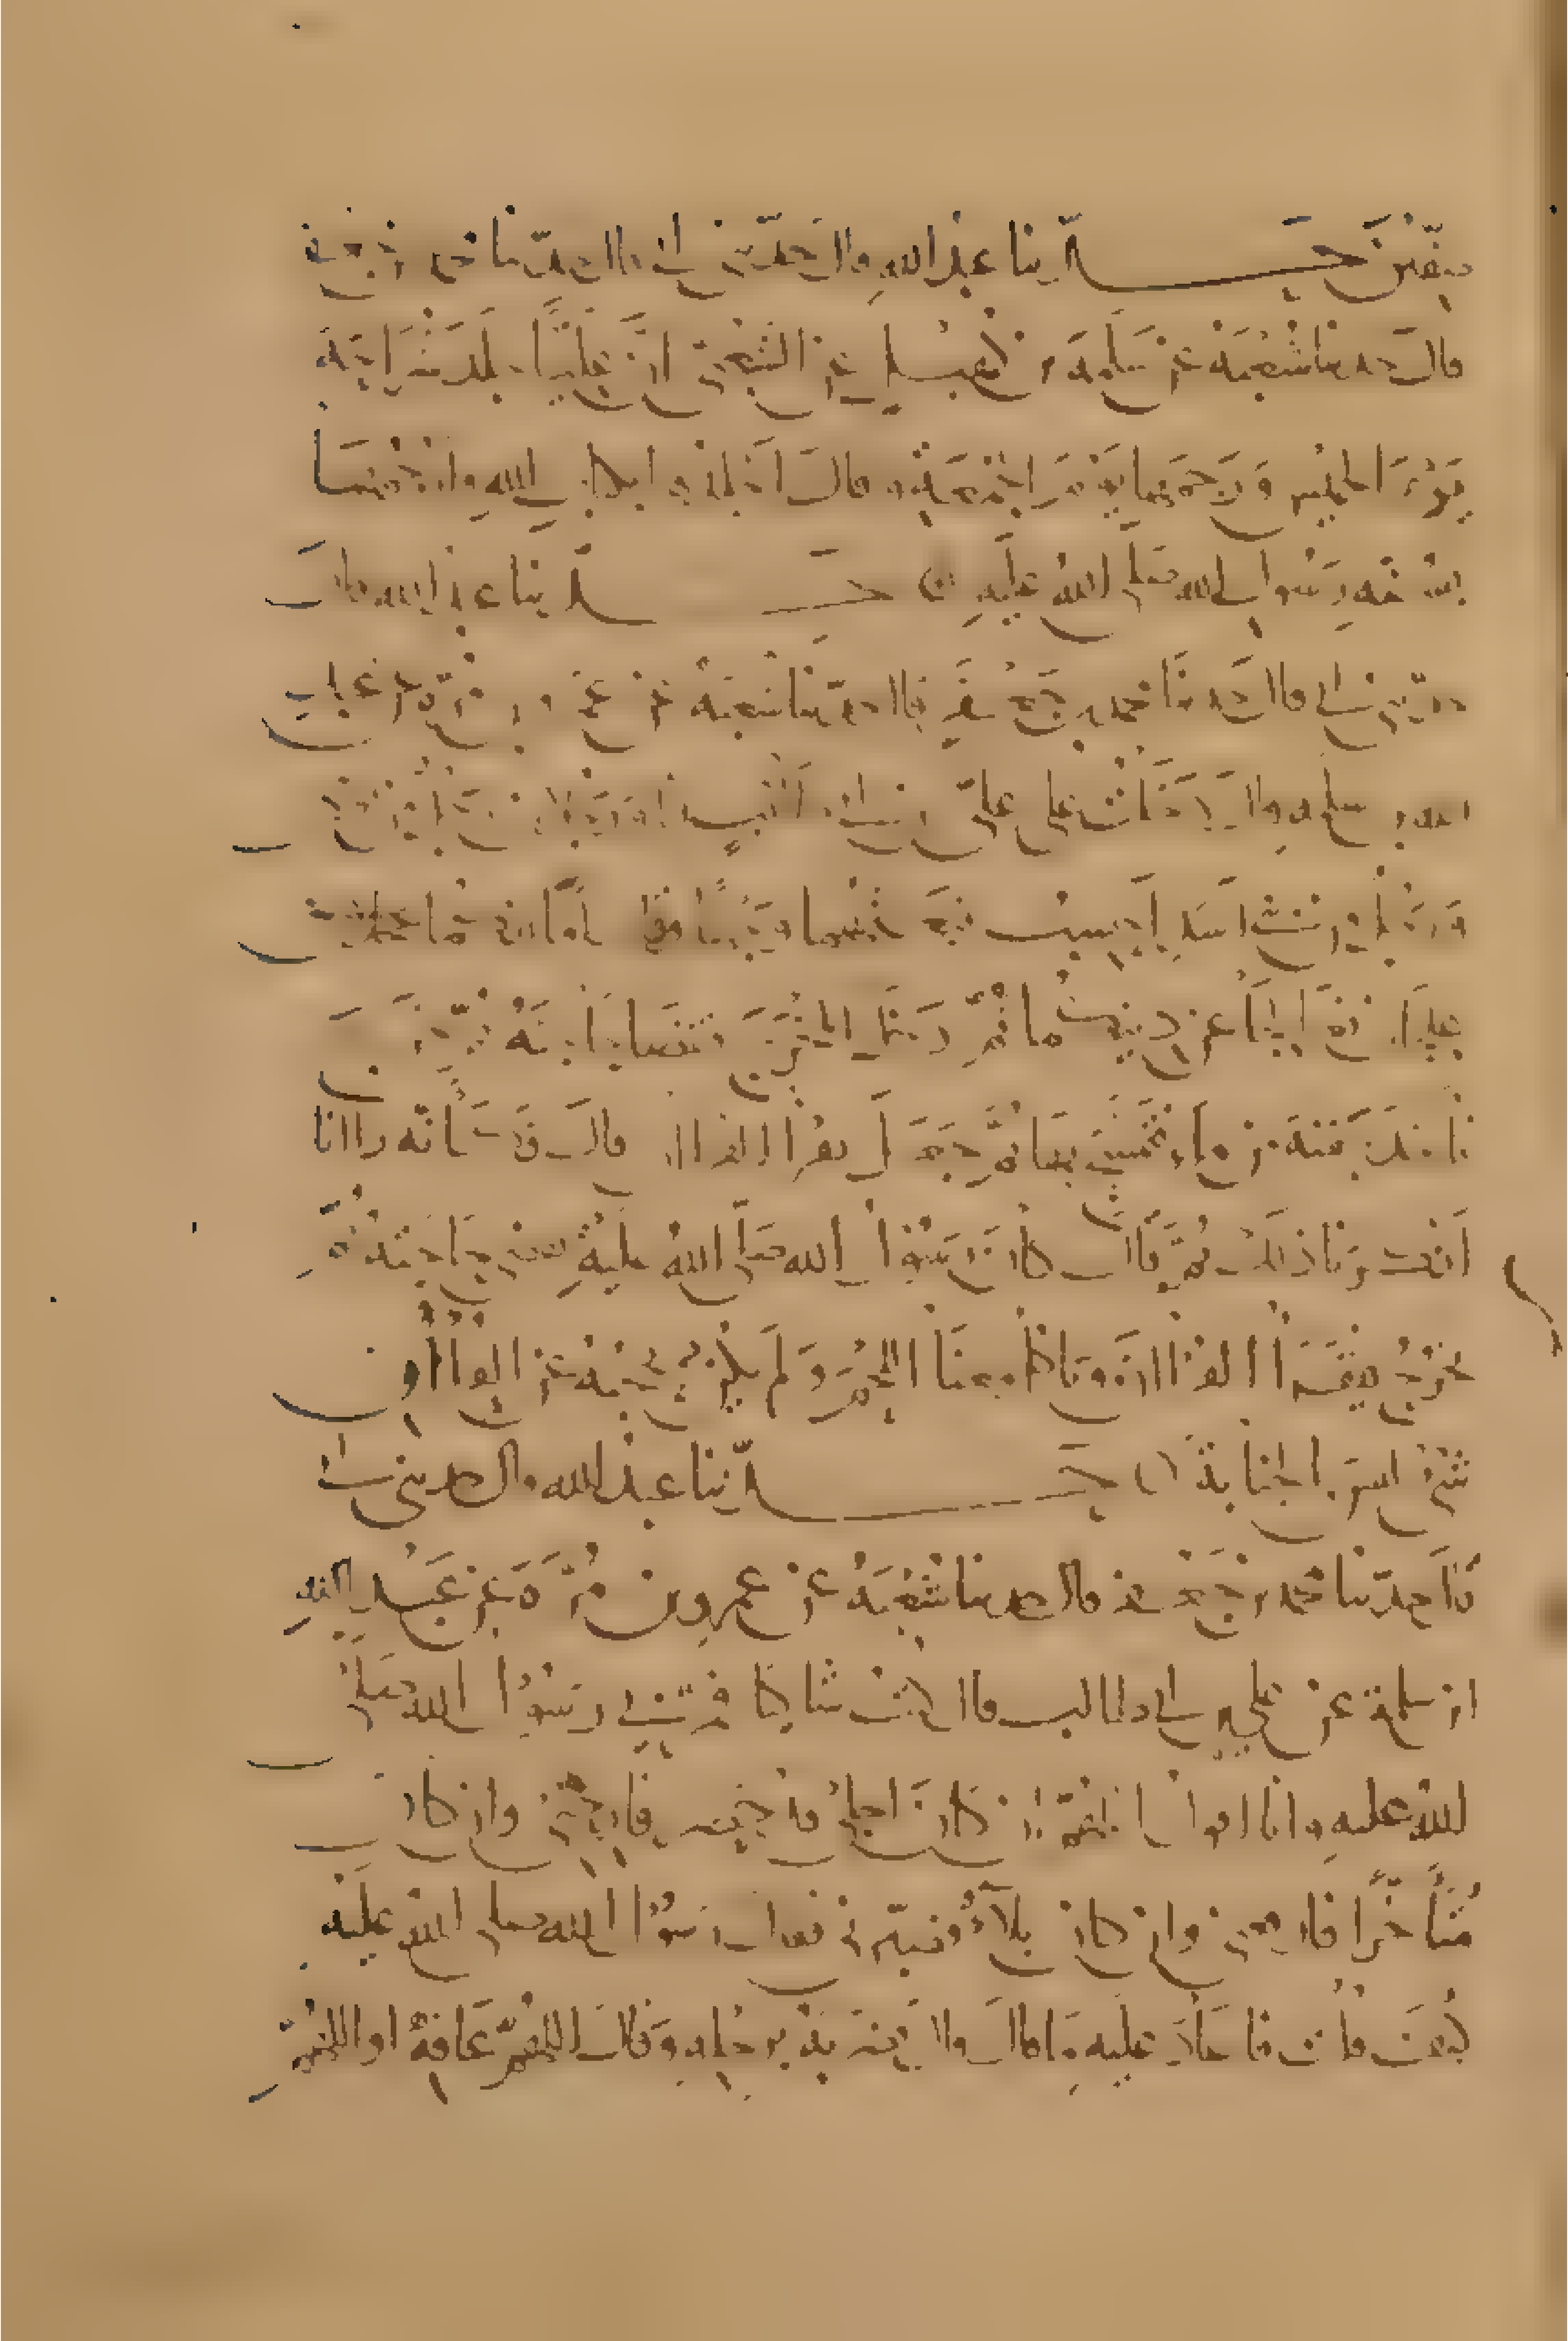 صفين حدثنا عبد الله قال حدثني ابي قال حدثنا محمد بن جعفر
قال حدثنا شعبة عن سلمة بن كهيل عن الشعبي ان عليا جلد شراحة
يوم الخميس ورجمها يوم الجمعة وقال اجلدها بكتاب الله وارجمها
بسنة رسول الله صلى الله عليه حدثنا عبد الله قال
حدثني ابي قال حدثنا محمد بن جعفر قال حدثنا شعبة عن عمرو بن مرة عن عبد
الله بن سلمة قال دخلت على علي بن ابي طالب انا ورجلان رجل من
ورجل من بني اسد احسب فبعثهما وجها وقال اما انكما علجان
فعالجا عن دينكما ثم دخل المخرج فقضى حاجته ثم خرج
فاخذ حفنة من ماء فتمسح بها ثم جعل يقرا القران قال فكانه رانا
انكرنا ذلك ثم قال كان رسول الله صلى الله عليه يقضي حاجته ثم
يخرج فيقرا القران وياكل معنا اللحم ولم يكن يحجبه عن القران
شيء ليس الجنابة حدثنا عبد الله قال حدثني ابي
قال حدثنا محمد بن جعفر قال حدثنا شعبة عن عمرو بن مرة عن عبد الله
بن سلمة عن علي بن ابي طالب قال كنت شاكيا فمر بي رسول الله صلى
الله عليه وانا اقول اللهم ان كان اجلي قد حضر فارحني وان كان
متاخرا فارفعني وان كان بلاء فصبرني فقال رسول الله صلى الله عليه
كيف قلت فاعاد عليه ما قال قال فضربه برجله وقال اللهم عافه او اللهم